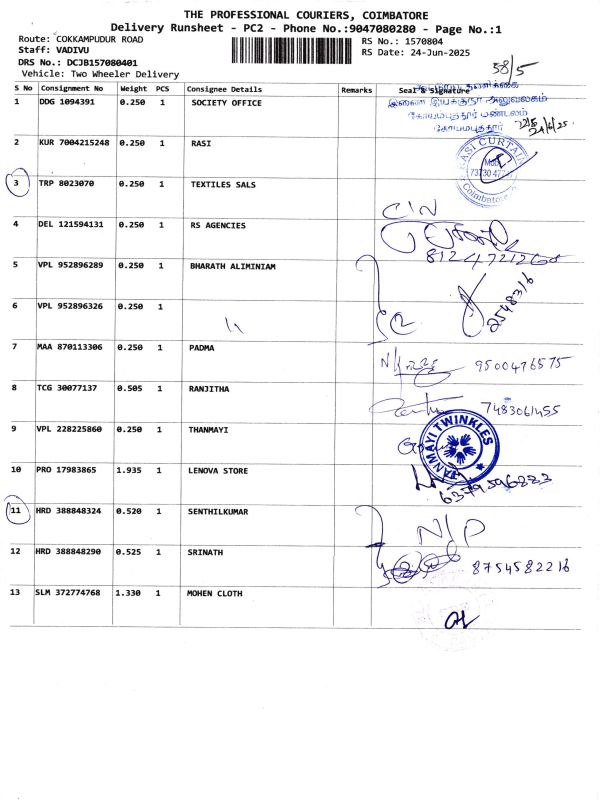 THE PROFESSIONAL COURIERS, COIMBATORE
Delivery Runsheet - PC2 - Phone No.:9047080280 - Page No.:1
Route: COKKAMPUDUR ROAD
RS No.: 1570804
Staff: VADIVU
RS Date: 24-Jun-2025
DRS No.: DCJB157080401
58/5
Vehicle: Two Wheeler Delivery
S No Consignment No Weight PCS Consignee Details Remarks Seal & Signature
இணை இயக்குநர் அலுவலகம்
கோயம்புத்தூர் மண்டலம்
கோயம்புத்தூர்
24/6/25
1 DDG 1094391 0.250 1 SOCIETY OFFICE
2 KUR 7004215248 0.250 1 RASI
CURTAIN
Coimbatore
3 TRP 8023070 0.250 1 TEXTILES SALS
C/N
4 DEL 121594131 0.250 1 RS AGENCIES
8124721268
5 VPL 952896289 0.250 1 BHARATH ALIMINIAM
2548316
6 VPL 952896326 0.250 1
"
7 MAA 870113306 0.250 1 PADMA
9500476575
8 TCG 30077137 0.505 1 RANJITHA
7483061455
9 VPL 228225860 0.250 1 THANMAYI
TANMAYI TWINKLES
10 PRO 17983865 1.935 1 LENOVA STORE
6379596223
11 HRD 388848324 0.520 1 SENTHILKUMAR
N/P
12 HRD 388848290 0.525 1 SRINATH
8754582216
13 SLM 372774768 1.330 1 MOHEN CLOTH